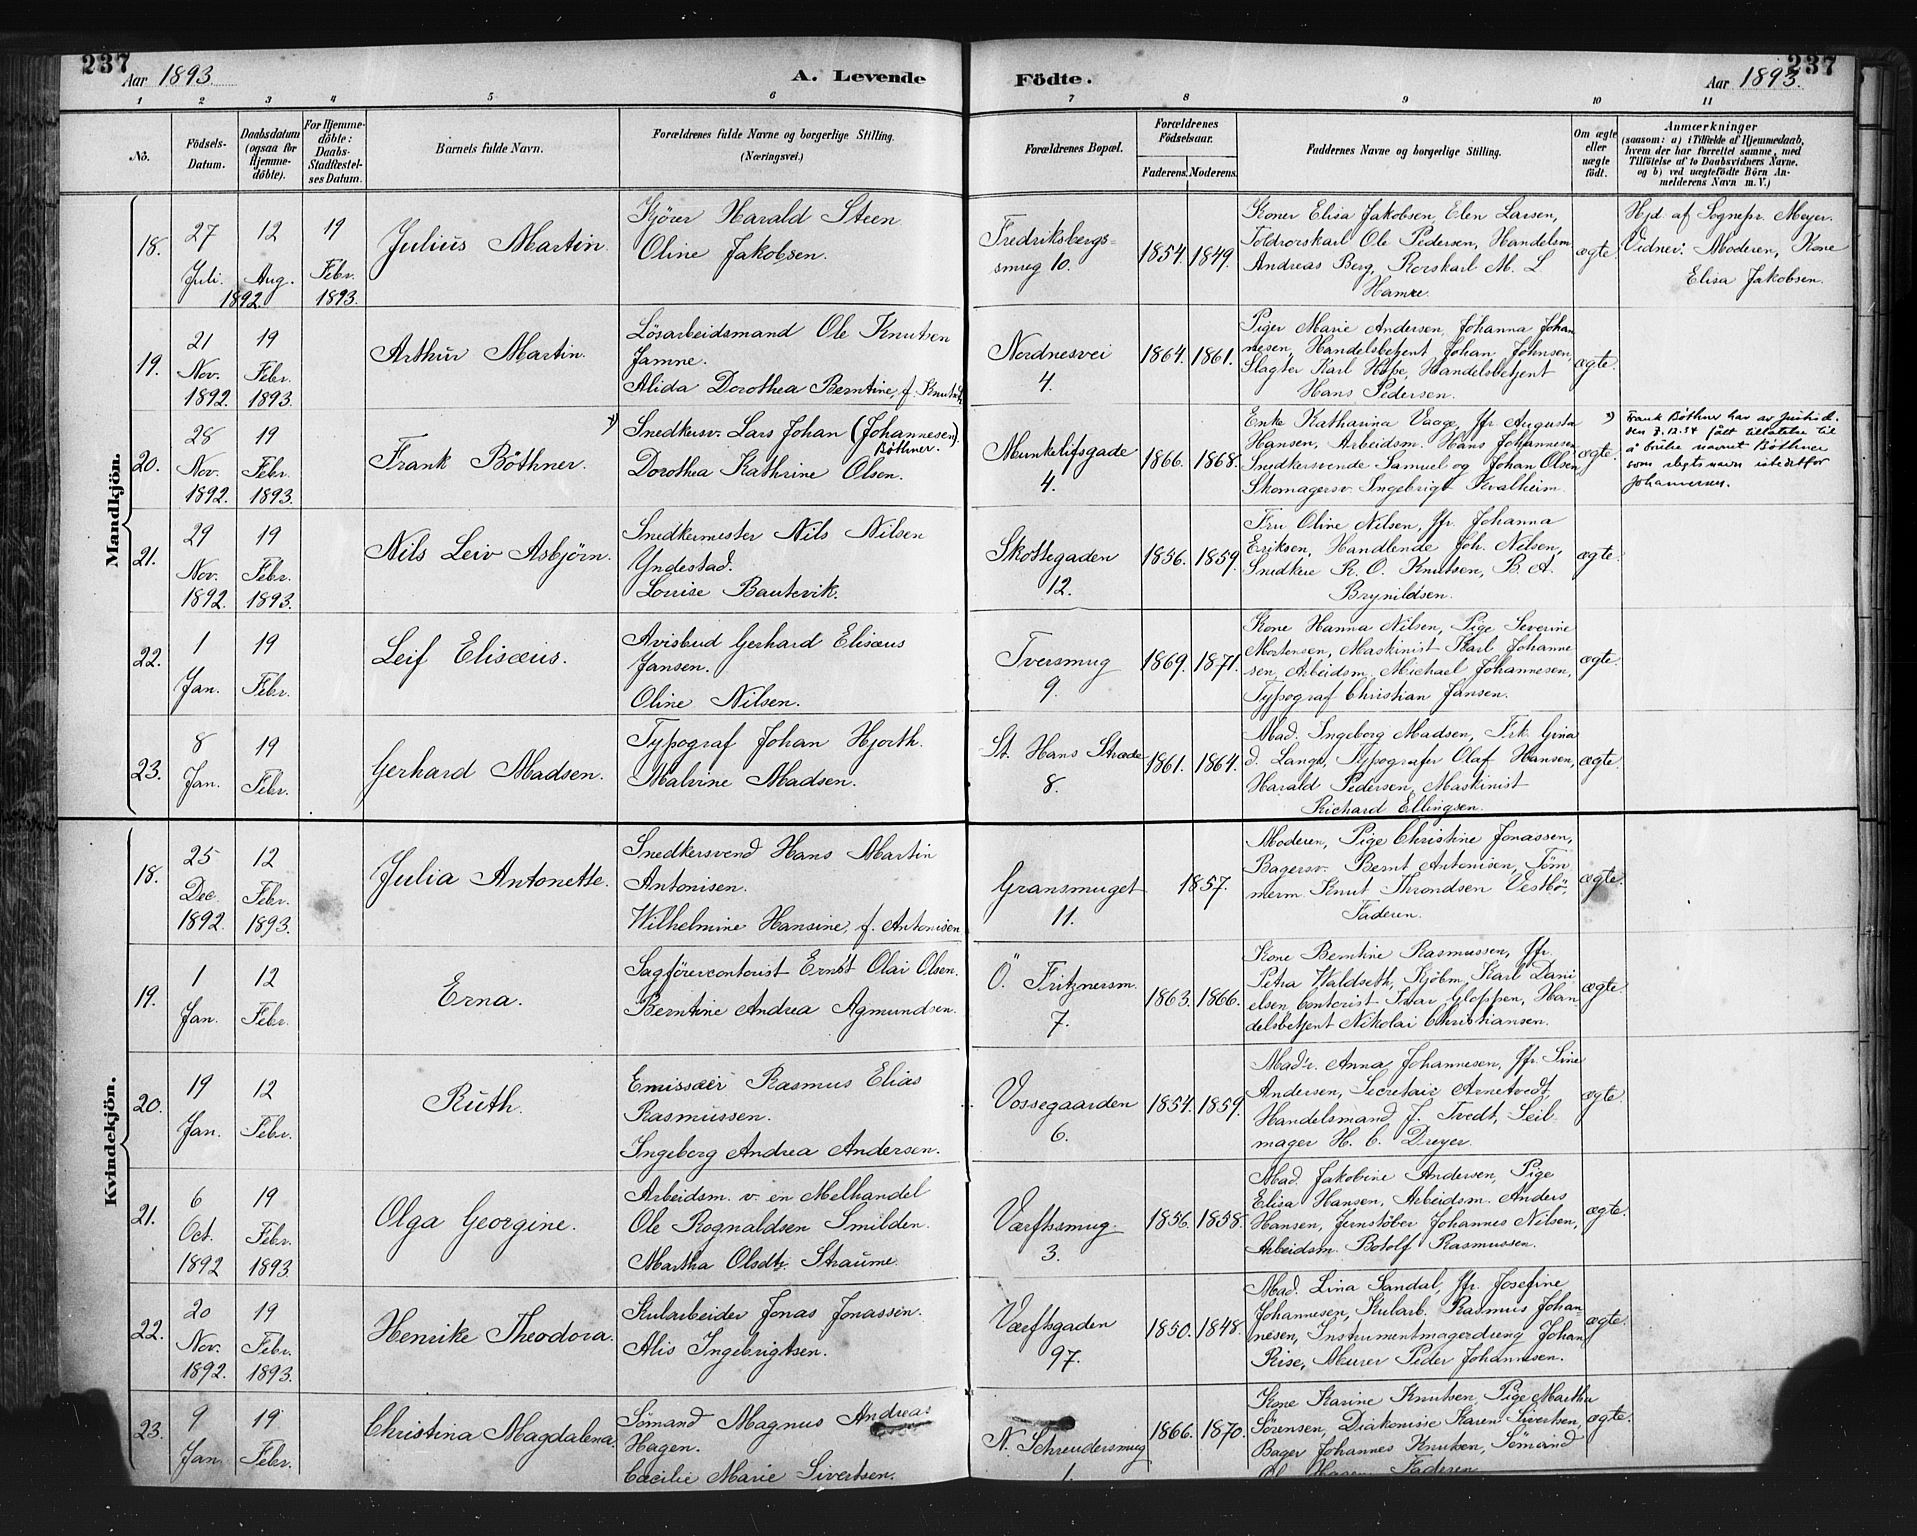 237
Aar 1893.
A. Levende
Födte.
Aar 1893.
237
1 2 3 4 5 6 7 8 9 10 11
No.
Födsels-
Datum.
Daabsdatum
(ogsaa for
Hjemme-
döbte).
For Hjemme-
döbte:
Daabs-
Stadfæstel-
ses Datum.
Barnets fulde Navn.
Forældrenes fulde Navne og borgerlige Stilling.
(Næringsvei.)
Forældrenes Bopæl.
Forældrenes
Födselsaar.
Faderens. Moderens.
Faddernes Navne og borgerlige Stilling.
Om ægte
eller
uægte
födt.
Anmærkninger
(saasom: a) i Tilfælde af Hjemmedaab,
hvem der har forrettet samme, med
Tilföielse af to Daabsvidners Navne.
og b) ved uægtefödte Börn An-
melderens Navn m. V.)
Mandkjön.
18.
27
Juli.
12
Aug.
1892.
19
Febr.
1893.
Julius Martin.
Kjörer Harald Steen
Oline Jakobsen.
Fredriksbergs=
smug 10.
1854. 1849.
Koner Elisa Jakobsen, Elen Larsen,
Toldrorskarl Ole Pedersen, Handelsm
Andreas Berg, Rorskarl M. L
Hamre.
ægte.
Hjd af Sognepr. Meyer.
Vidner: Moderen, Kone
Elisa Jakobsen.
19.
21
Nov.
1892.
19
Febr.
1893.
Arthur Martin.
Lösarbeidsmand Ole Knutsen
Jamne.
Alida Dorothea Berntine, f. Knutsen
Nordnesvei
4.
1864. 1861.
Piger Marie Andersen, Johanna Johan
nesen, Handelsbetjent Johan Johnsen,
Slagter Karl Hope, Handelsbetjent
Hans Pedersen.
ægte.
20.
28
Nov.
1892.
19
Febr.
1893.
Frank Böthner.
Snedkersv. Lars Johan (Johannesen).
Böthner.
Dorothea Kathrine Olsen.
Munkelifsgade
4.
1866. 1868.
Enke Katharina Vaage, Jfr Augusta
Hansen, Arbeidsm. Hans Johannesen
Snedkersvende Samuel og Johan Olsen,
Skomagersv. Ingebrigt Kvalheim.
ægte.
Frank Bøthner har av Justisd.
den 7.12.34 fått tillatelse til
å bruke navnet Bøthner
som slegtsnavn istedetfor
Johannesen.
21.
29
Nov.
1892.
19
Febr.
1893.
Nils Leiv Asbjörn.
Snedkermester Nils Nilsen
Yndestad.
Louise Bautevik.
Skottegaden
12.
1856. 1859.
Fru Oline Nilsen, Jfr. Johanna
Eriksen, Handlende Joh. Nilsen,
Snedkere R. O. Knutsen, B. A.
Brynildsen.
ægte.
22.
1
Jan.
19
Febr.
Leif Elisæus.
Avisbud Gerhard Elisæus
Jansen.
Oline Nilsen.
Tversmug
9.
1869. 1871.
Kone Hanna Nilsen, Pige Severine
Mortensen, Maskinist Karl Johanne
sen, Arbeidsm. Michael Johannesen,
Typograf Christian Jansen.
ægte.
23.
8
Jan.
19
Febr.
Gerhard Madsen.
Typograf Johan Hjorth.
Malvine Madsen.
St. Hans Stræde
8.
1861. 1864.
Mad. Ingeborg Madsen, Frk Gina
d. Lange, Typografer Olaf Hansen,
Harald Pedersen, Maskinist
Richard Ellingsen.
ægte.
Kvindekjön.
18.
25
Dec.
1892.
12
Febr.
1893.
Julia Antonette.
Snedkersvend Hans Martin
Antonisen.
Wilhelmine Hansine, f. Antonisen
Gransmuget
11.
1857.
Moderen, Pige Christine Jonassen,
Bagersv. Bernt Antonisen, Töm
merm. Knut Throndsen Vestbö,
Faderen.
ægte.
19.
1
Jan.
12
Febr.
Erna.
Sagförercontorist Ernst Olai Olsen.
Berntine Andrea Agmundsen.
Ö. Fritznersm.
7.
1863. 1866.
Kone Berntine Rasmussen, Jfr.
Petra Waldseth, Kjöbm. Karl Dani
elsen, Contorist Ivar Gloppen, Han-
delsbetjent Nikolai Christiansen.
ægte.
20.
19
Jan.
12
Febr.
Ruth.
Emissær Rasmus Elias
Rasmussen.
Ingeborg Andrea Andersen.
Vossegaarden
6.
1854. 1859.
Mad. Anna Johannesen, Jfr. Sine
Andersen, Secretair Arnetvedt,
Handelsmand J. Tvedt, Seil-
mager H. C. Dreyer.
ægte.
21.
6
Oct.
1892
19
Febr.
1893.
Olga Georgine.
Arbeidsm. v. en Melhandel
Ole Rognaldsen Smilden.
Martha Olsdtr. Straume.
Værftssmug.
3.
1856. 1858.
Mad. Jakobine Andersen, Pige
Elisa Hansen, Arbeidsm. Anders
Hansen, Jernstöber Johannes Nilsen,
Arbeidsm. Botolf Rasmussen.
ægte.
22.
20
Nov.
1892.
19
Febr.
1893.
Henrike Theodora.
Kularbeider Jonas Jonassen.
Alis Ingebrigtsen.
Værftsgaden
97.
1850. 1848.
Mad. Lina Sandal, Jfr. Josefine
Johannesen, Kularb. Rasmus Johan-
nesen, Instrumentmagerdreng Johan
Rise, Murer Peder Johannesen.
ægte.
23.
9
Jan.
19
Febr.
Christina Magdalena.
Sömand Magnus Andreas
Hagen.
Cæcilie Marie Sivertsen.
N. Schreudersmug
1.
1866. 1870.
Kone Karine Knutsen, Pige Martha
Sörensen, Diakonisse Karen Sivertsen,
Bager Johannes Knutsen, Sömand
Faderen
ægte.